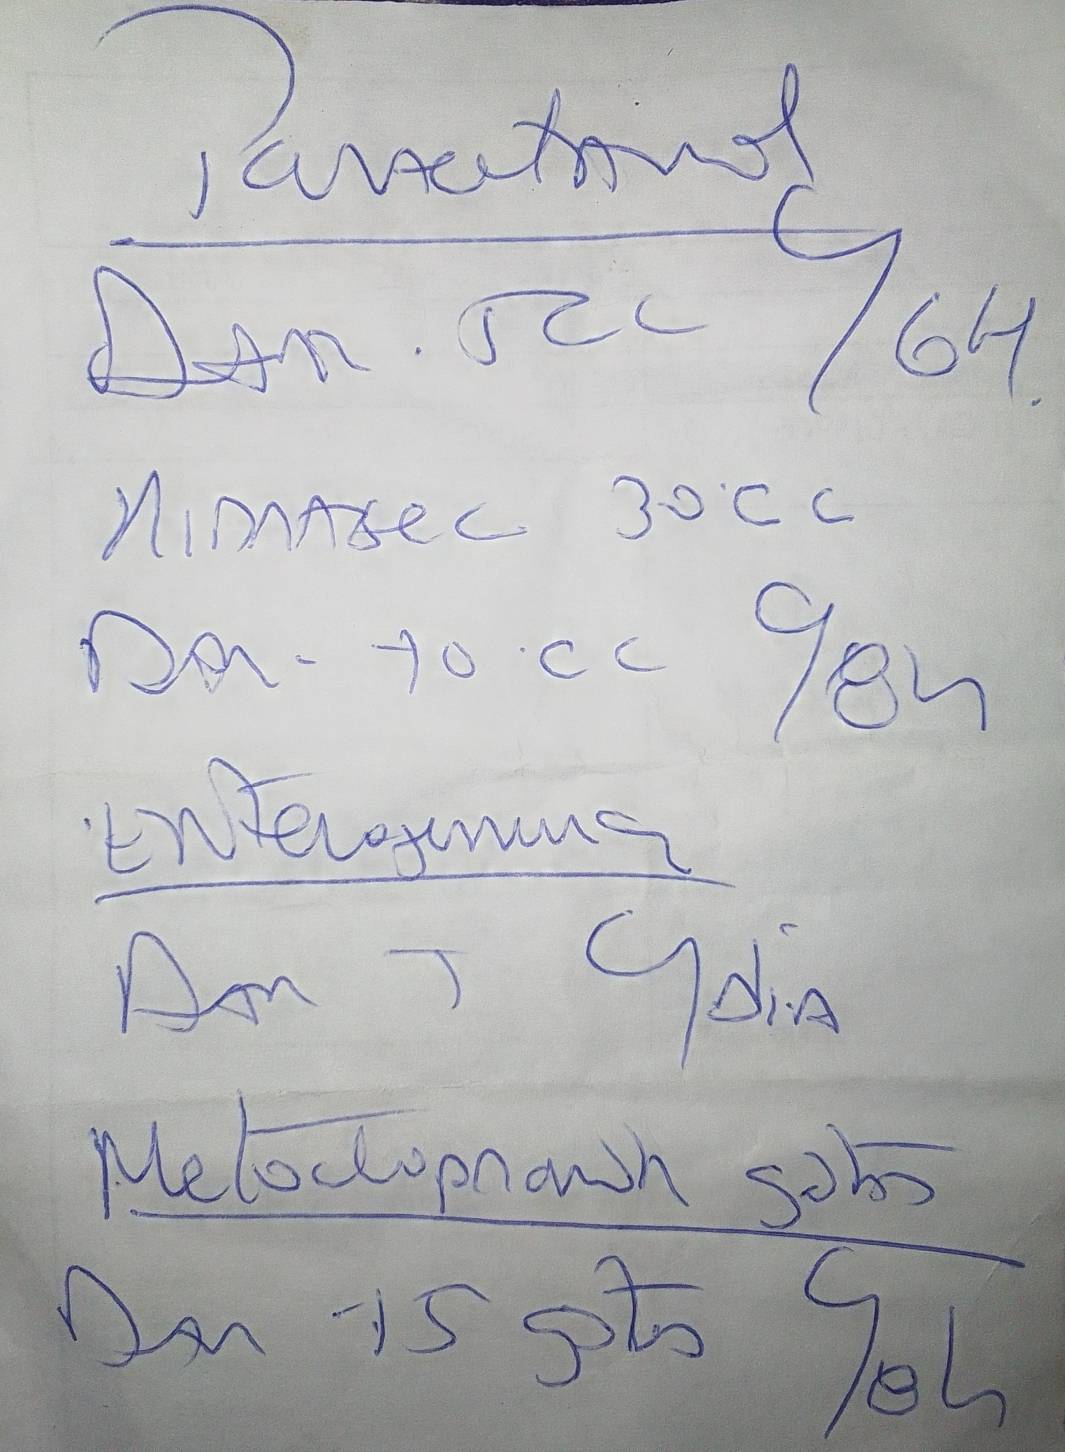 Paracetamol
Dar. 5cc c/6H.
30 cc
Dar - 10 cc c/8h
Enterogermina
Dar 1 c/dia
Metoclopramida gotas
Dar 15 gotas c/8h